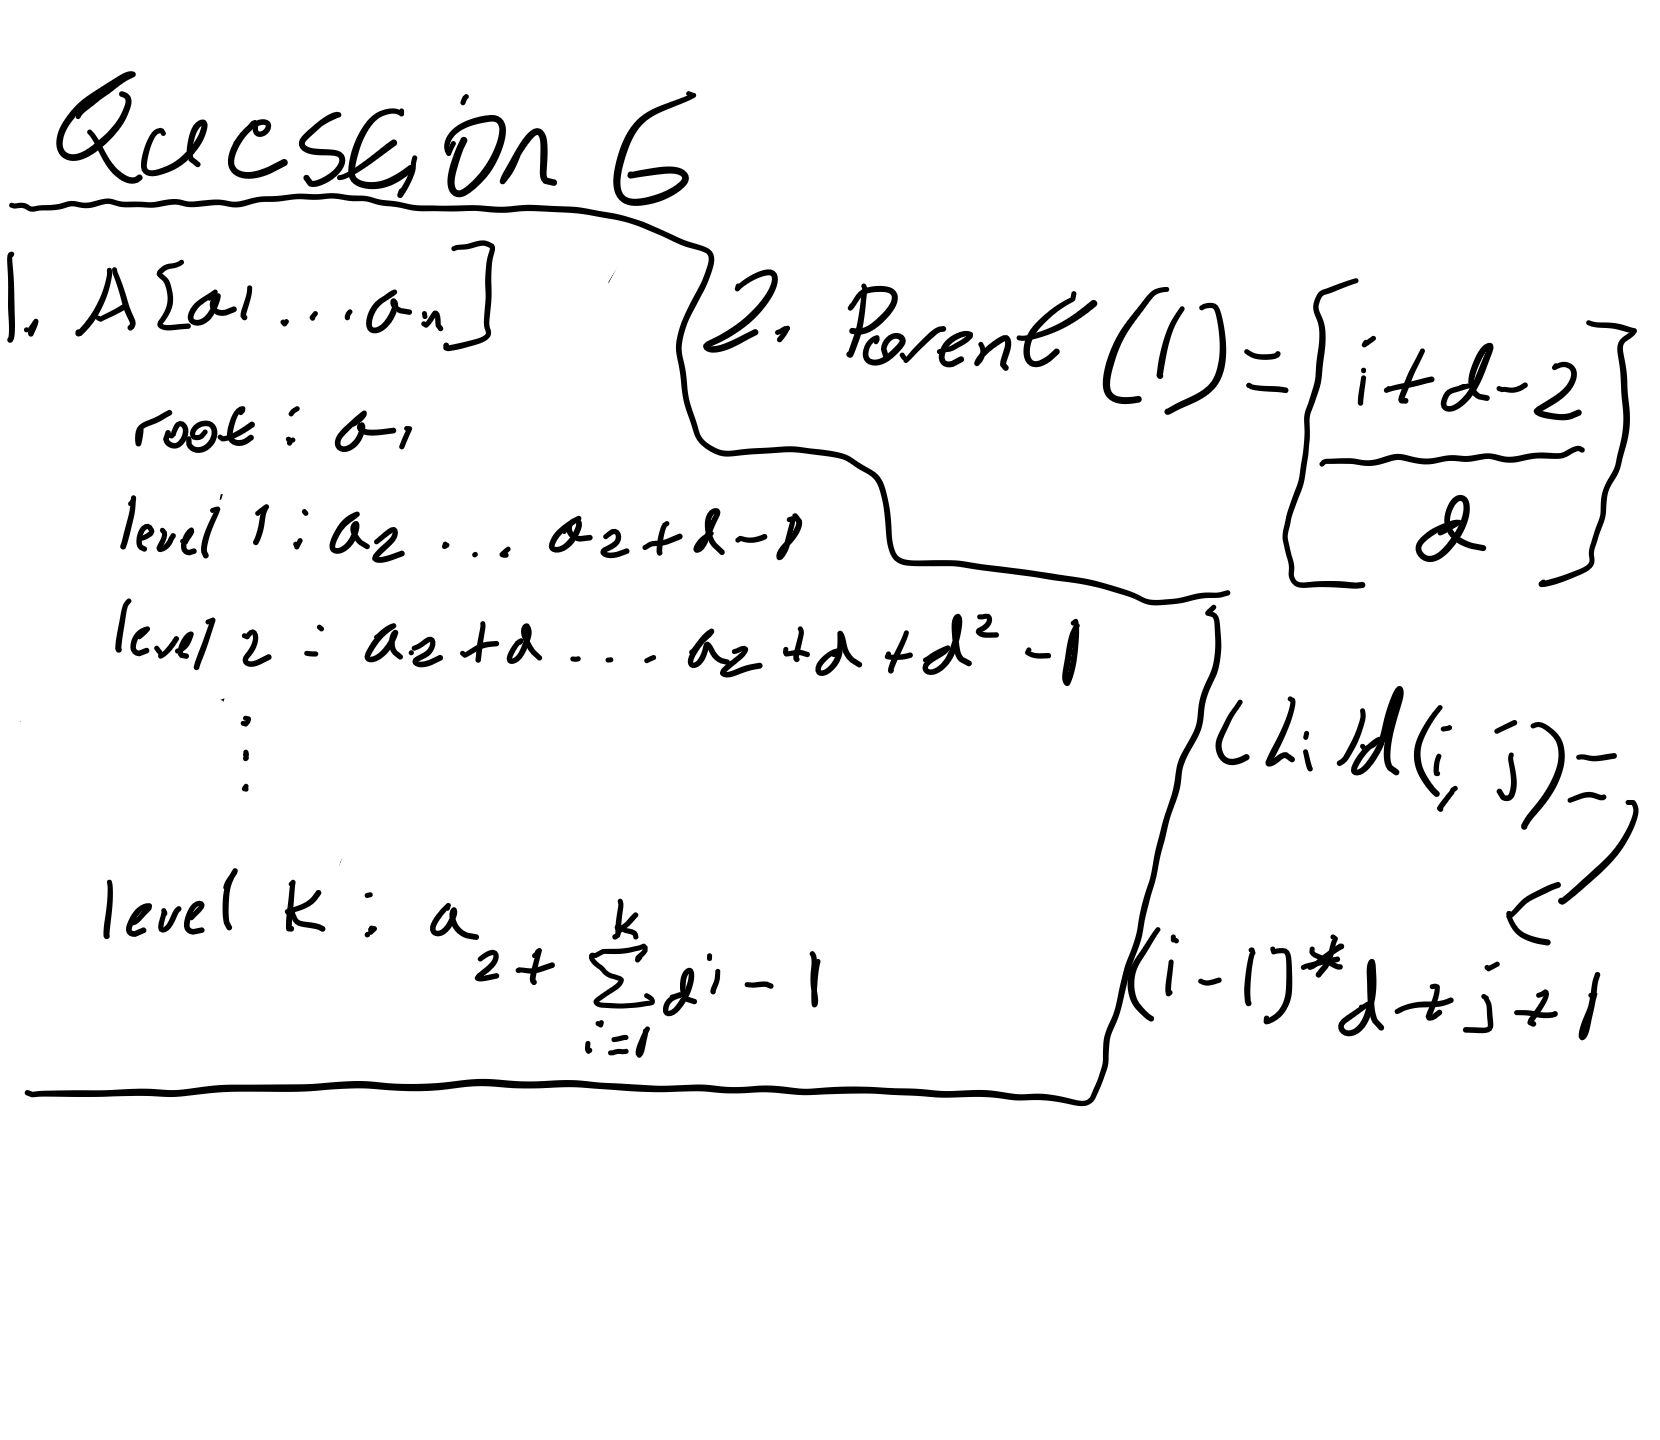 Question 6
1. A[a1 ... an]
root : a1
level 1 : a2 ... a2+d-1
level 2 : a2+d ... a2+d+d²-1
⋮
level K : a 2+ Σ_{i=1}^{k} d^i - 1
2. Parent (1) = [(i+d-2)/d]
Child(i, j) =
(i-1)*d+j+1